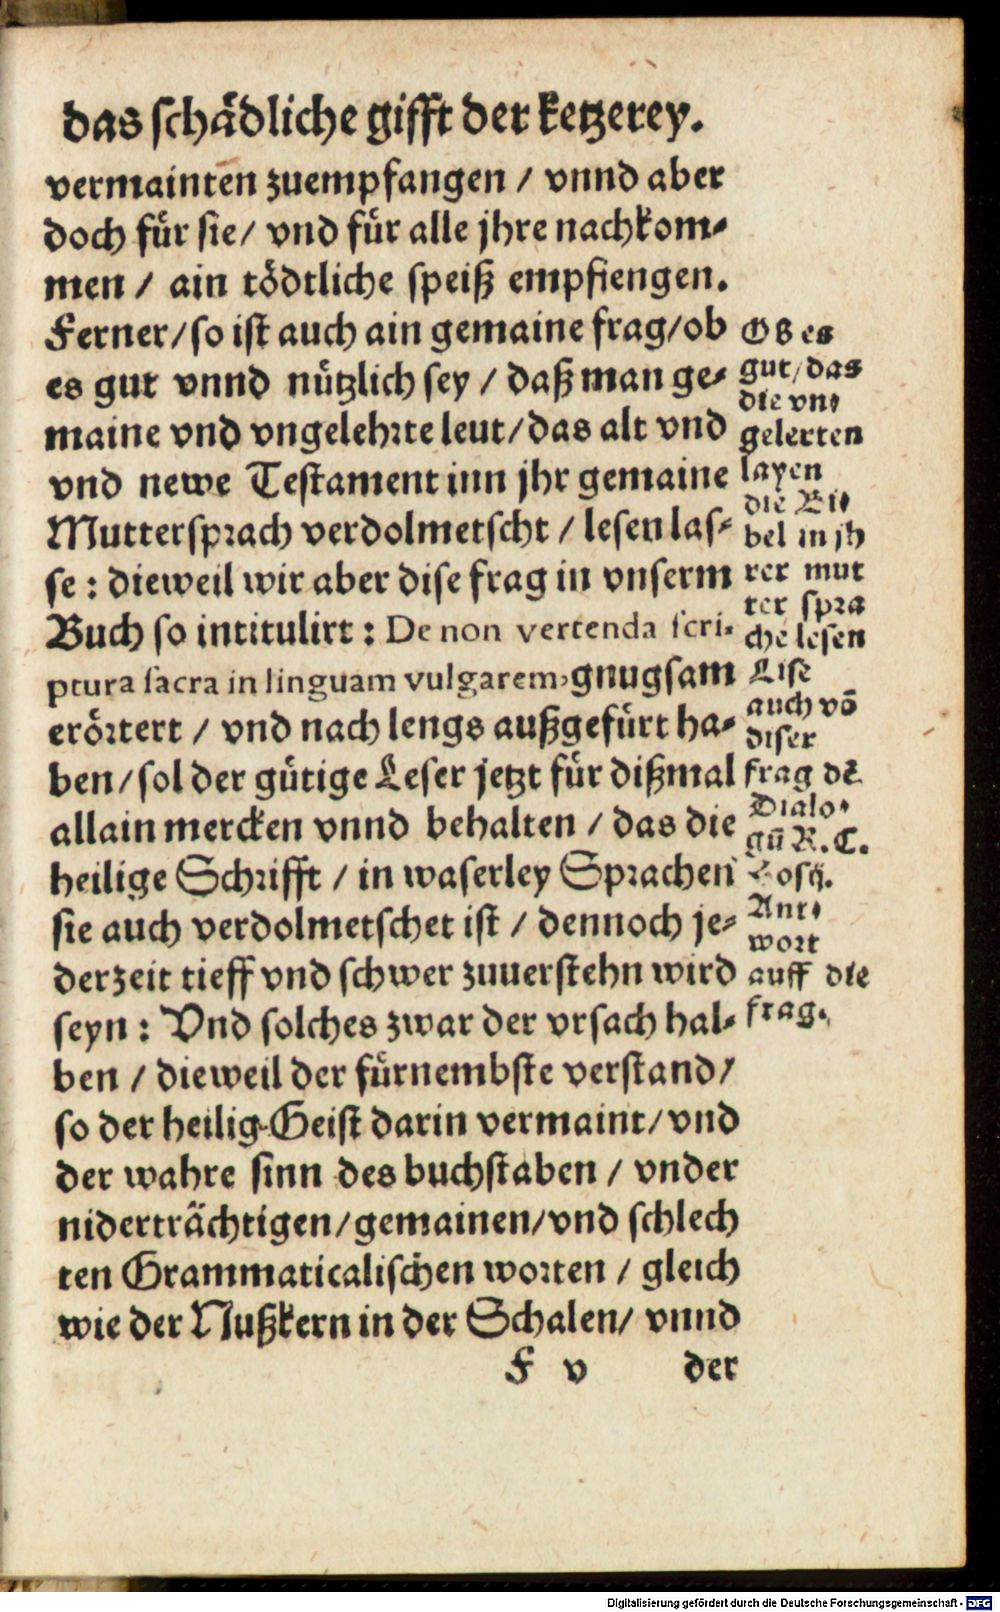 das schådliche gifft der ketzerey.
vermainten zuempfangen / vnnd aber
doch für sie / vnd für alle jhre nachkom⸗
men / ain tödtliche speiß empfiengen.
Ferner / so ist auch ain gemaine frag / ob
es gut vnnd nützlich sey / daß man ge⸗
maine vnd vngelehrte leut / das alt vnd
vnd newe Testament inn jhr gemaine
Muttersprach verdolmetscht / lesen las⸗
se : dieweil wir aber dise frag in vnserm
Buch so intitulirt : De non vertenda scri-
ptura sacra in linguam vulgarem, gnugsam
erörtert / vnd nach lengs außgefürt ha⸗
ben / sol der gütige Leser jetzt für dißmal
allain mercken vnnd behalten / das die
heilige Schrifft / in waserley Sprachen
sie auch verdolmetschet ist / dennoch je⸗
derzeit tieff vnd schwer zuuerstehn wird
seyn : Vnd solches zwar der vrsach hal⸗
ben / dieweil der fürnembste verstand /
so der heilig Geist darin vermaint / vnd
der wahre sinn des buchstaben / vnder
niderträchtigen / gemainen / vnd schlech
ten Grammaticalischen worten / gleich
wie der Nußkern in der Schalen / vnnd
F v der
Ob es
gut / das
die vn⸗
gelerten
layen
die Bi⸗
bel in jh
rer mut
ter spra
che lesen
Lise
auch võ
diser
frag dē
Dialo⸗
gū R. C.
Hosij.
Ant⸗
wort
auff die
frag.
Digitalisierung gefördert durch die Deutsche Forschungsgemeinschaft - DFG